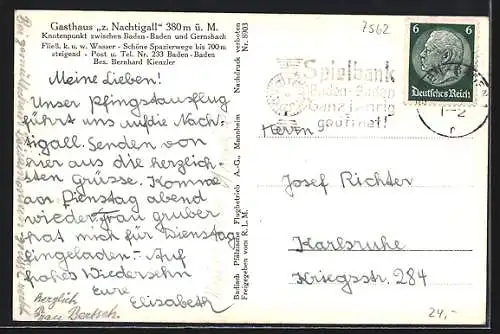 Gasthaus „z. Nachtigall" 380 m ü. M.
Knotenpunkt zwischen Baden-Baden und Gernsbach
Fließ. k. u. w. Wasser - Schöne Spazierwege bis 700 m
steigend - Post u. Tel. Nr. 233 Baden-Baden
Bes. Bernhard Kienzler
Meine Lieben!
Unser Pfingstausflug
führt uns auf die Nach-
tigall. Senden von
hier aus die herzlich-
sten Grüsse. Komme
am Dienstag abend
wieder. Frau Gruber
hat mich für Dienstag
eingeladen. - Auf
frohes Wiedersehn
Eure
Elisabeth
herzlich
Frau Bertsch.
Nachdruck verboten
Nr. 8903
Badisch - Pfälzische Flugbetrieb A.-G. Mannheim
Freigegeben vom R.L.M.
7562
Spielbank
Baden-Baden
Ganzjährig
geöffnet!
1-2
6
6
Deutsches Reich
Herrn
Josef Richter
Karlsruhe
Kriegsstr. 284
24,-